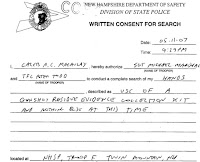 NEW HAMPSHIRE DEPARTMENT OF SAFETY
DIVISION OF STATE POLICE
WRITTEN CONSENT FOR SEARCH
Date: 05-11-07
Time: 9:29PM
I, CALEB R.C. MACAULAY, hereby authorize SGT MICHAEL MARSHALL
and TFC ROBB TODD to conduct a complete search of my HANDS
described as USE OF A
GUNSHOT RESIDUE EVIDENCE COLLECTION KIT
AND NOTHING ELSE AT THIS TIME
located at NHSP, TROOP F TWIN MOUNTAIN NH